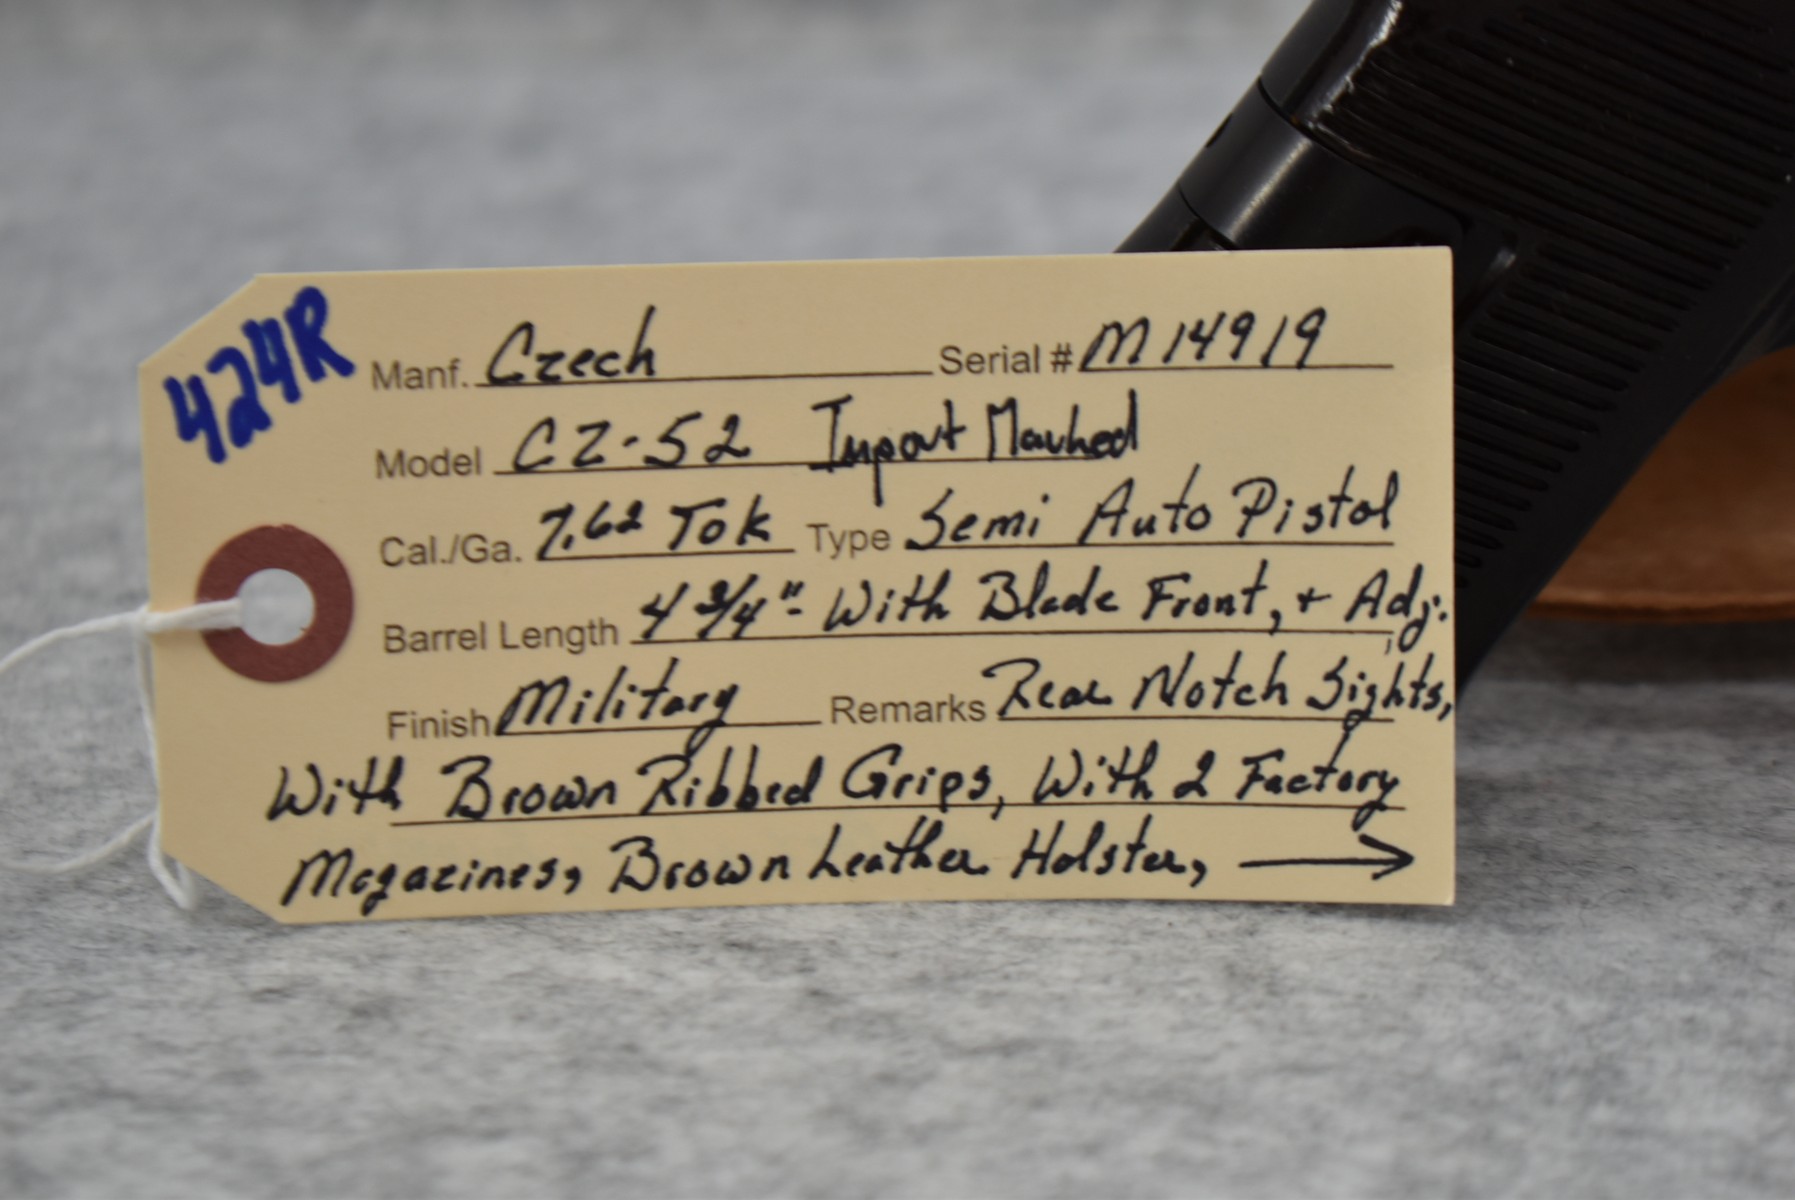 424R
Manf. Czech Serial # M14919
Model CZ-52 Import Marked
Cal./Ga. 7.62 Tok Type Semi Auto Pistol
Barrel Length 4 3/4" - With Blade Front, + Adj.
Finish Military Remarks Rear Notch Sights,
With Brown Ribbed Grips, With 2 Factory
Magazines, Brown Leather Holster, →